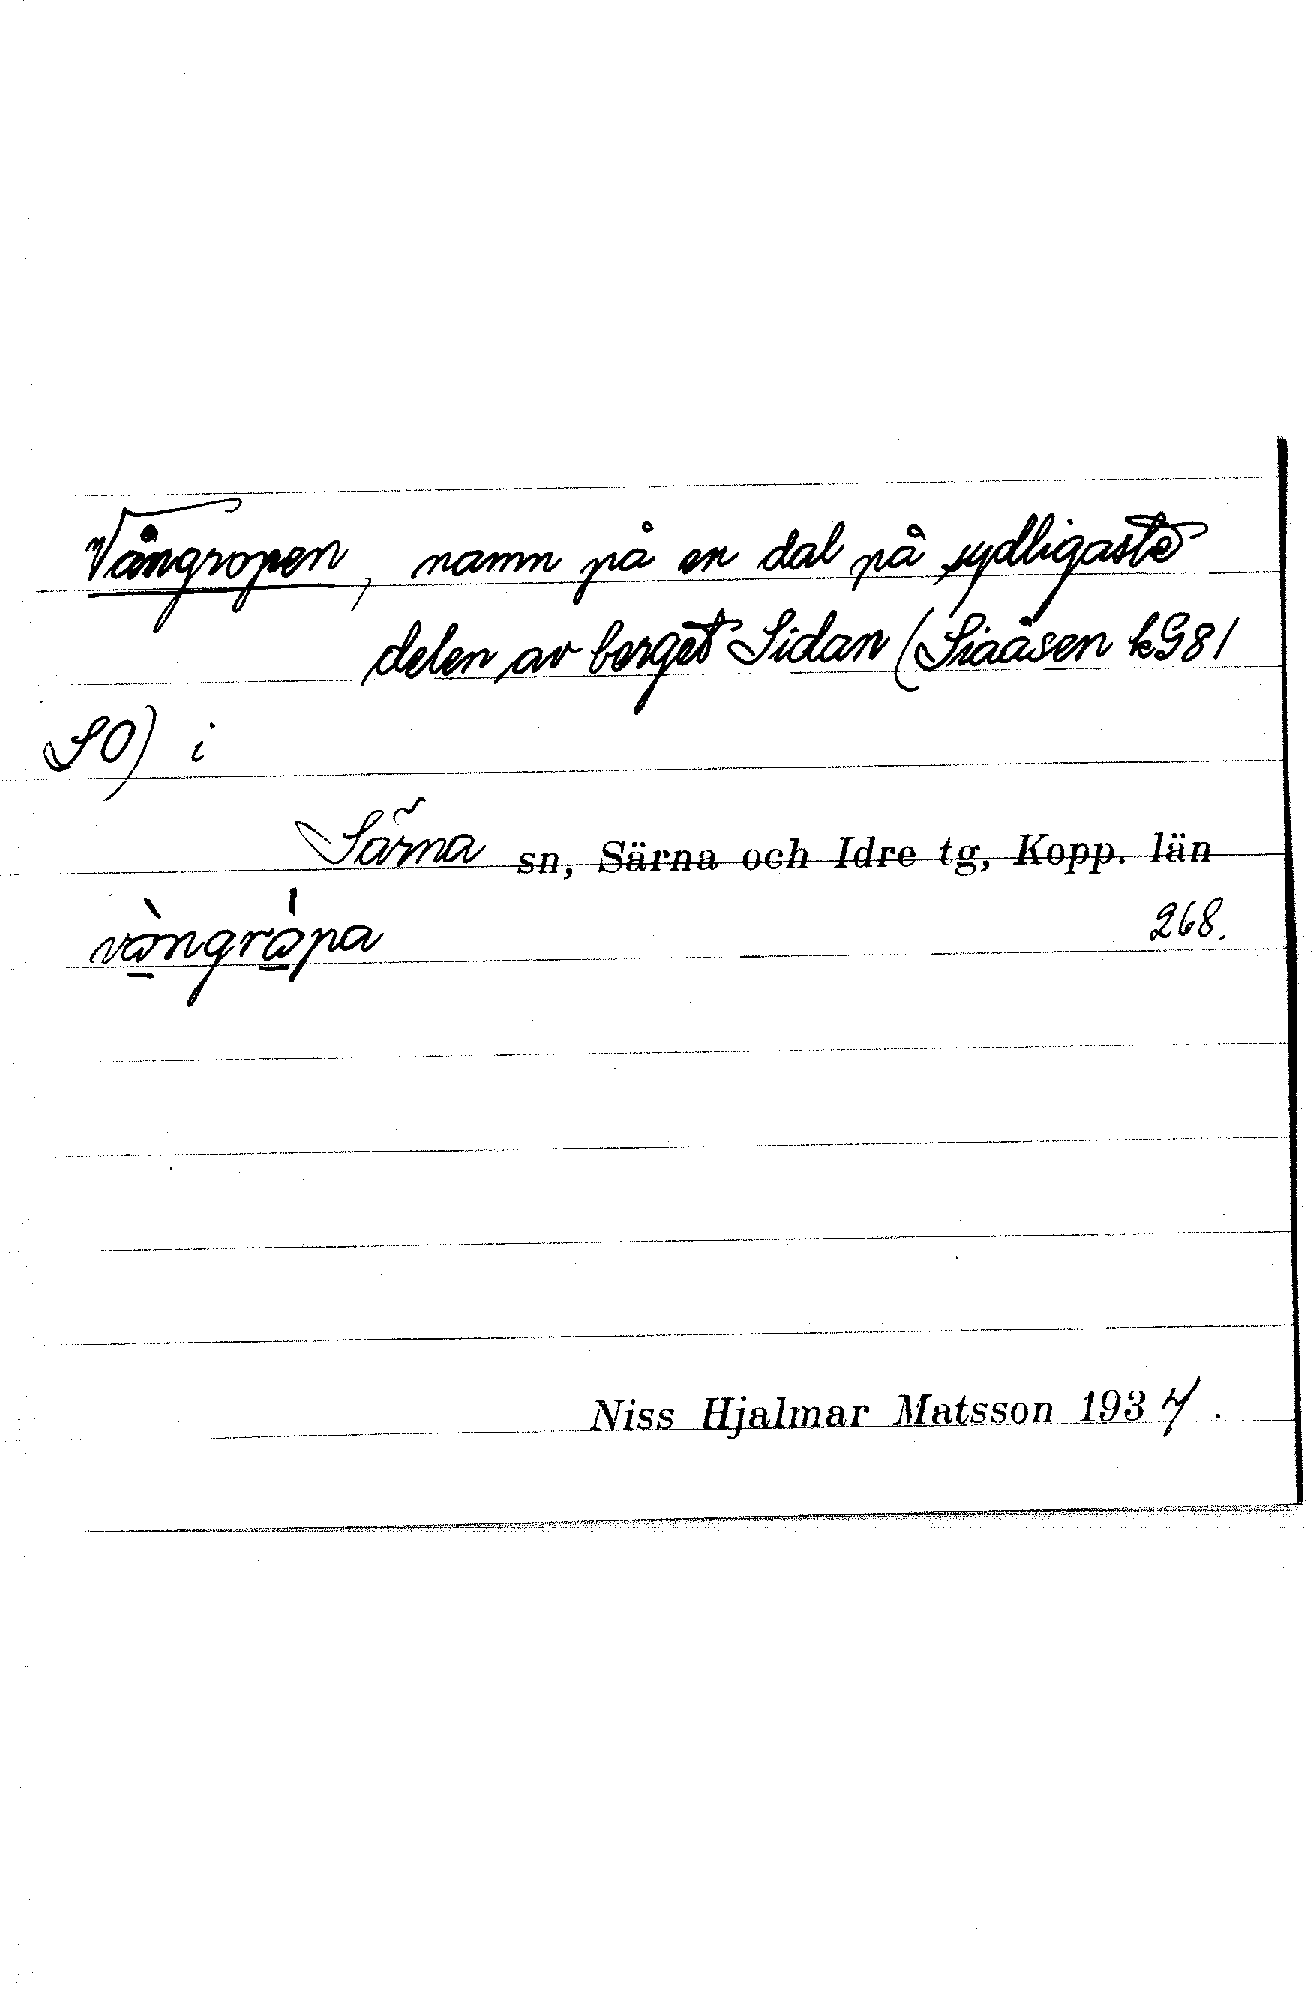 Vångropen, namn på en dal på sydligaste
delen av berget Sidan (Siaåsen kG81
SO) i
Särna sn, Särna och Idre tg, Kopp. län
268.
Niss Hjalmar Matsson 1934.